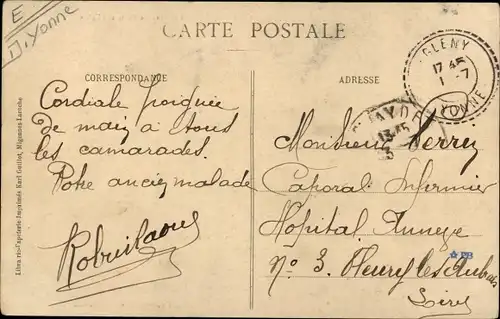 E
D. Yonne
CARTE POSTALE
CORRESPONDANCE
ADRESSE
GLENY
17 45
1 -7
YONNE
13 45
Cordiale poignée
de main à tous
les camarades.
Votre ancien malade
Monsieur Perrin
Caporal Infirmier
Hôpital Annexe
No 3. Fleury les Aubrais
Loiret
Librairie-Papeterie-Imprimerie Karl Guillot, Migennes-Laroche